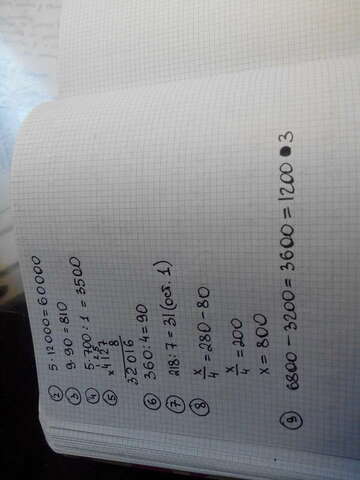 ② 5·12000=60000
③ 9·90=810
④ 5·700:1=3500
⑤ ×4127
8
32016
⑥ 360:4=90
⑦ 218:7=31(ост. 1)
⑧ x/4=280-80
x/4=200
x=800
⑨ 6800-3200=3600=1200•3